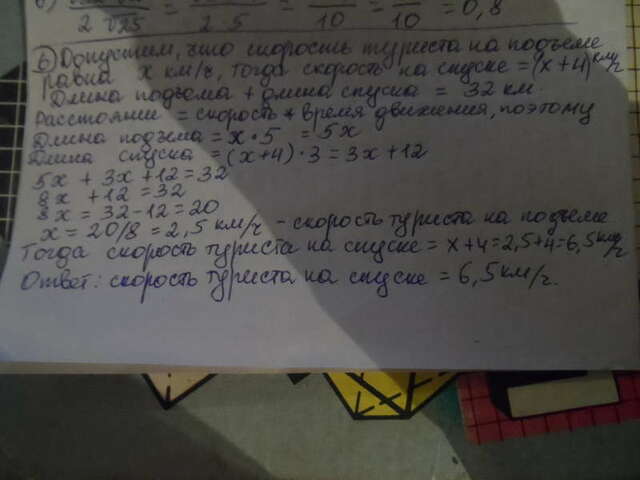 2√25 = 2·5 = 10 = 10 = 0,8
6) Допустим, что скорость туриста на подъеме
равна x км/ч, тогда скорость на спуске = (x+4) км/ч
Длина подъема + длина спуска = 32 км.
Расстояние = скорость * время движения, поэтому
Длина подъема = x * 5 = 5x
Длина спуска = (x+4) · 3 = 3x + 12
5x + 3x + 12 = 32
8x + 12 = 32
8x = 32 - 12 = 20
x = 20/8 = 2,5 км/ч - скорость туриста на подъеме
Тогда скорость туриста на спуске = x+4=2,5+4=6,5 км/ч
Ответ: скорость туриста на спуске = 6,5 км/ч.